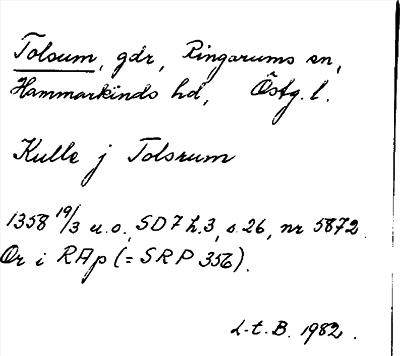 Tolsum, gdr, Ringarums sn,
Hammarkinds hd, Östg. l.
Kulle j Tolsrum
1358 19/3 u.o., SD7 h.3, s.26, nr 5872.
Or i RAp (= SRP 356).
L-t.B. 1982.